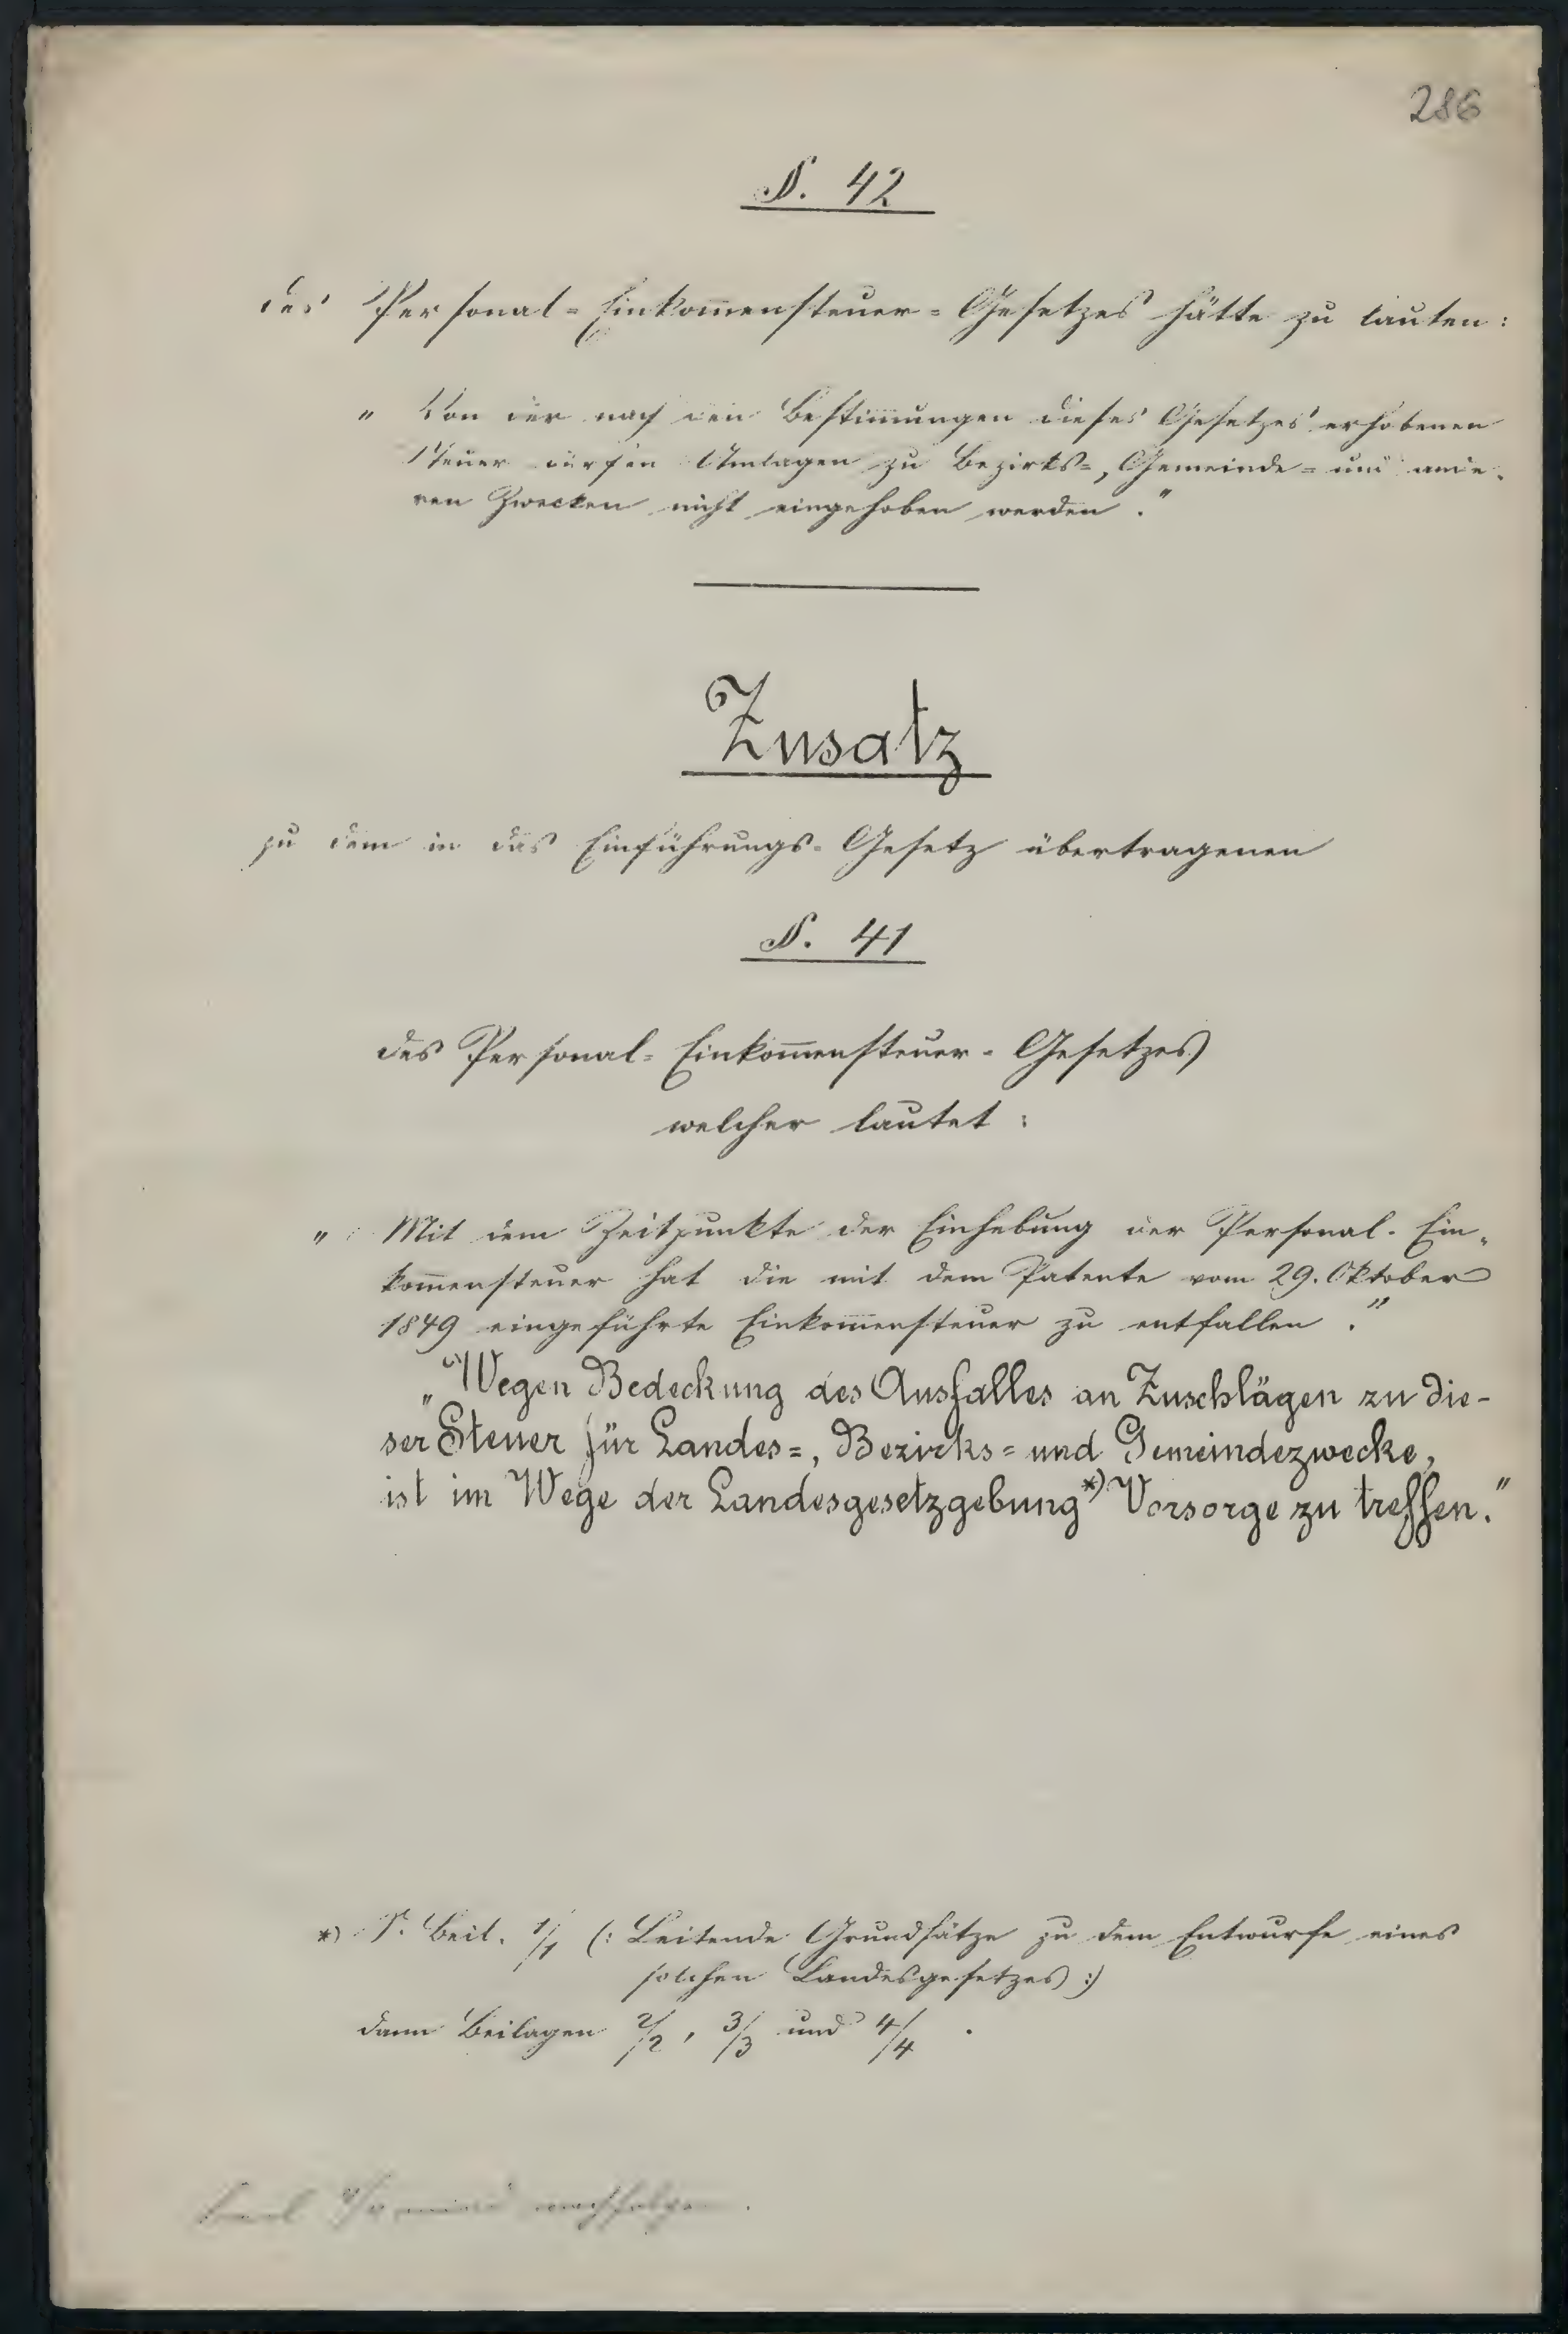 286
§. 42
des Personal=Einkom̅ensteuer=Gesetzes hätte zu lauten:
" Von der nach den Bestim̅ungen dieses Gesetzes erhobenen
Steuer dürfen Umlagen zu Bezirks=, Gemeinde= und ande-
ren Zwecken nicht eingehoben werden."
Zusatz
zu dem in das Einführungs-Gesetz übertragenen
§. 41
des Personal-Einkom̅ensteuer-Gesetzes
welcher lautet:
" Mit dem Zeitpunkte der Einhebung der Personal-Ein-
kom̅ensteuer hat die mit dem Patente vom 29. Oktober
1849 eingeführte Einkom̅ensteuer zu entfallen."
"Wegen Bedeckung des Ausfalles an Zuschlägen zu die-
ser Steuer für Landes=, Bezirks= und Gemeindezwecke,
ist im Wege der Landesgesetzgebung*) Vorsorge zu treffen."
*) S. Beil. 1/1 (: Leitende Grundsätze zu dem Entwurfe eines
solchen Landesgesetzes :)
dann Beilagen 2/2, 3/3 und 4/4.
nachfolgen.